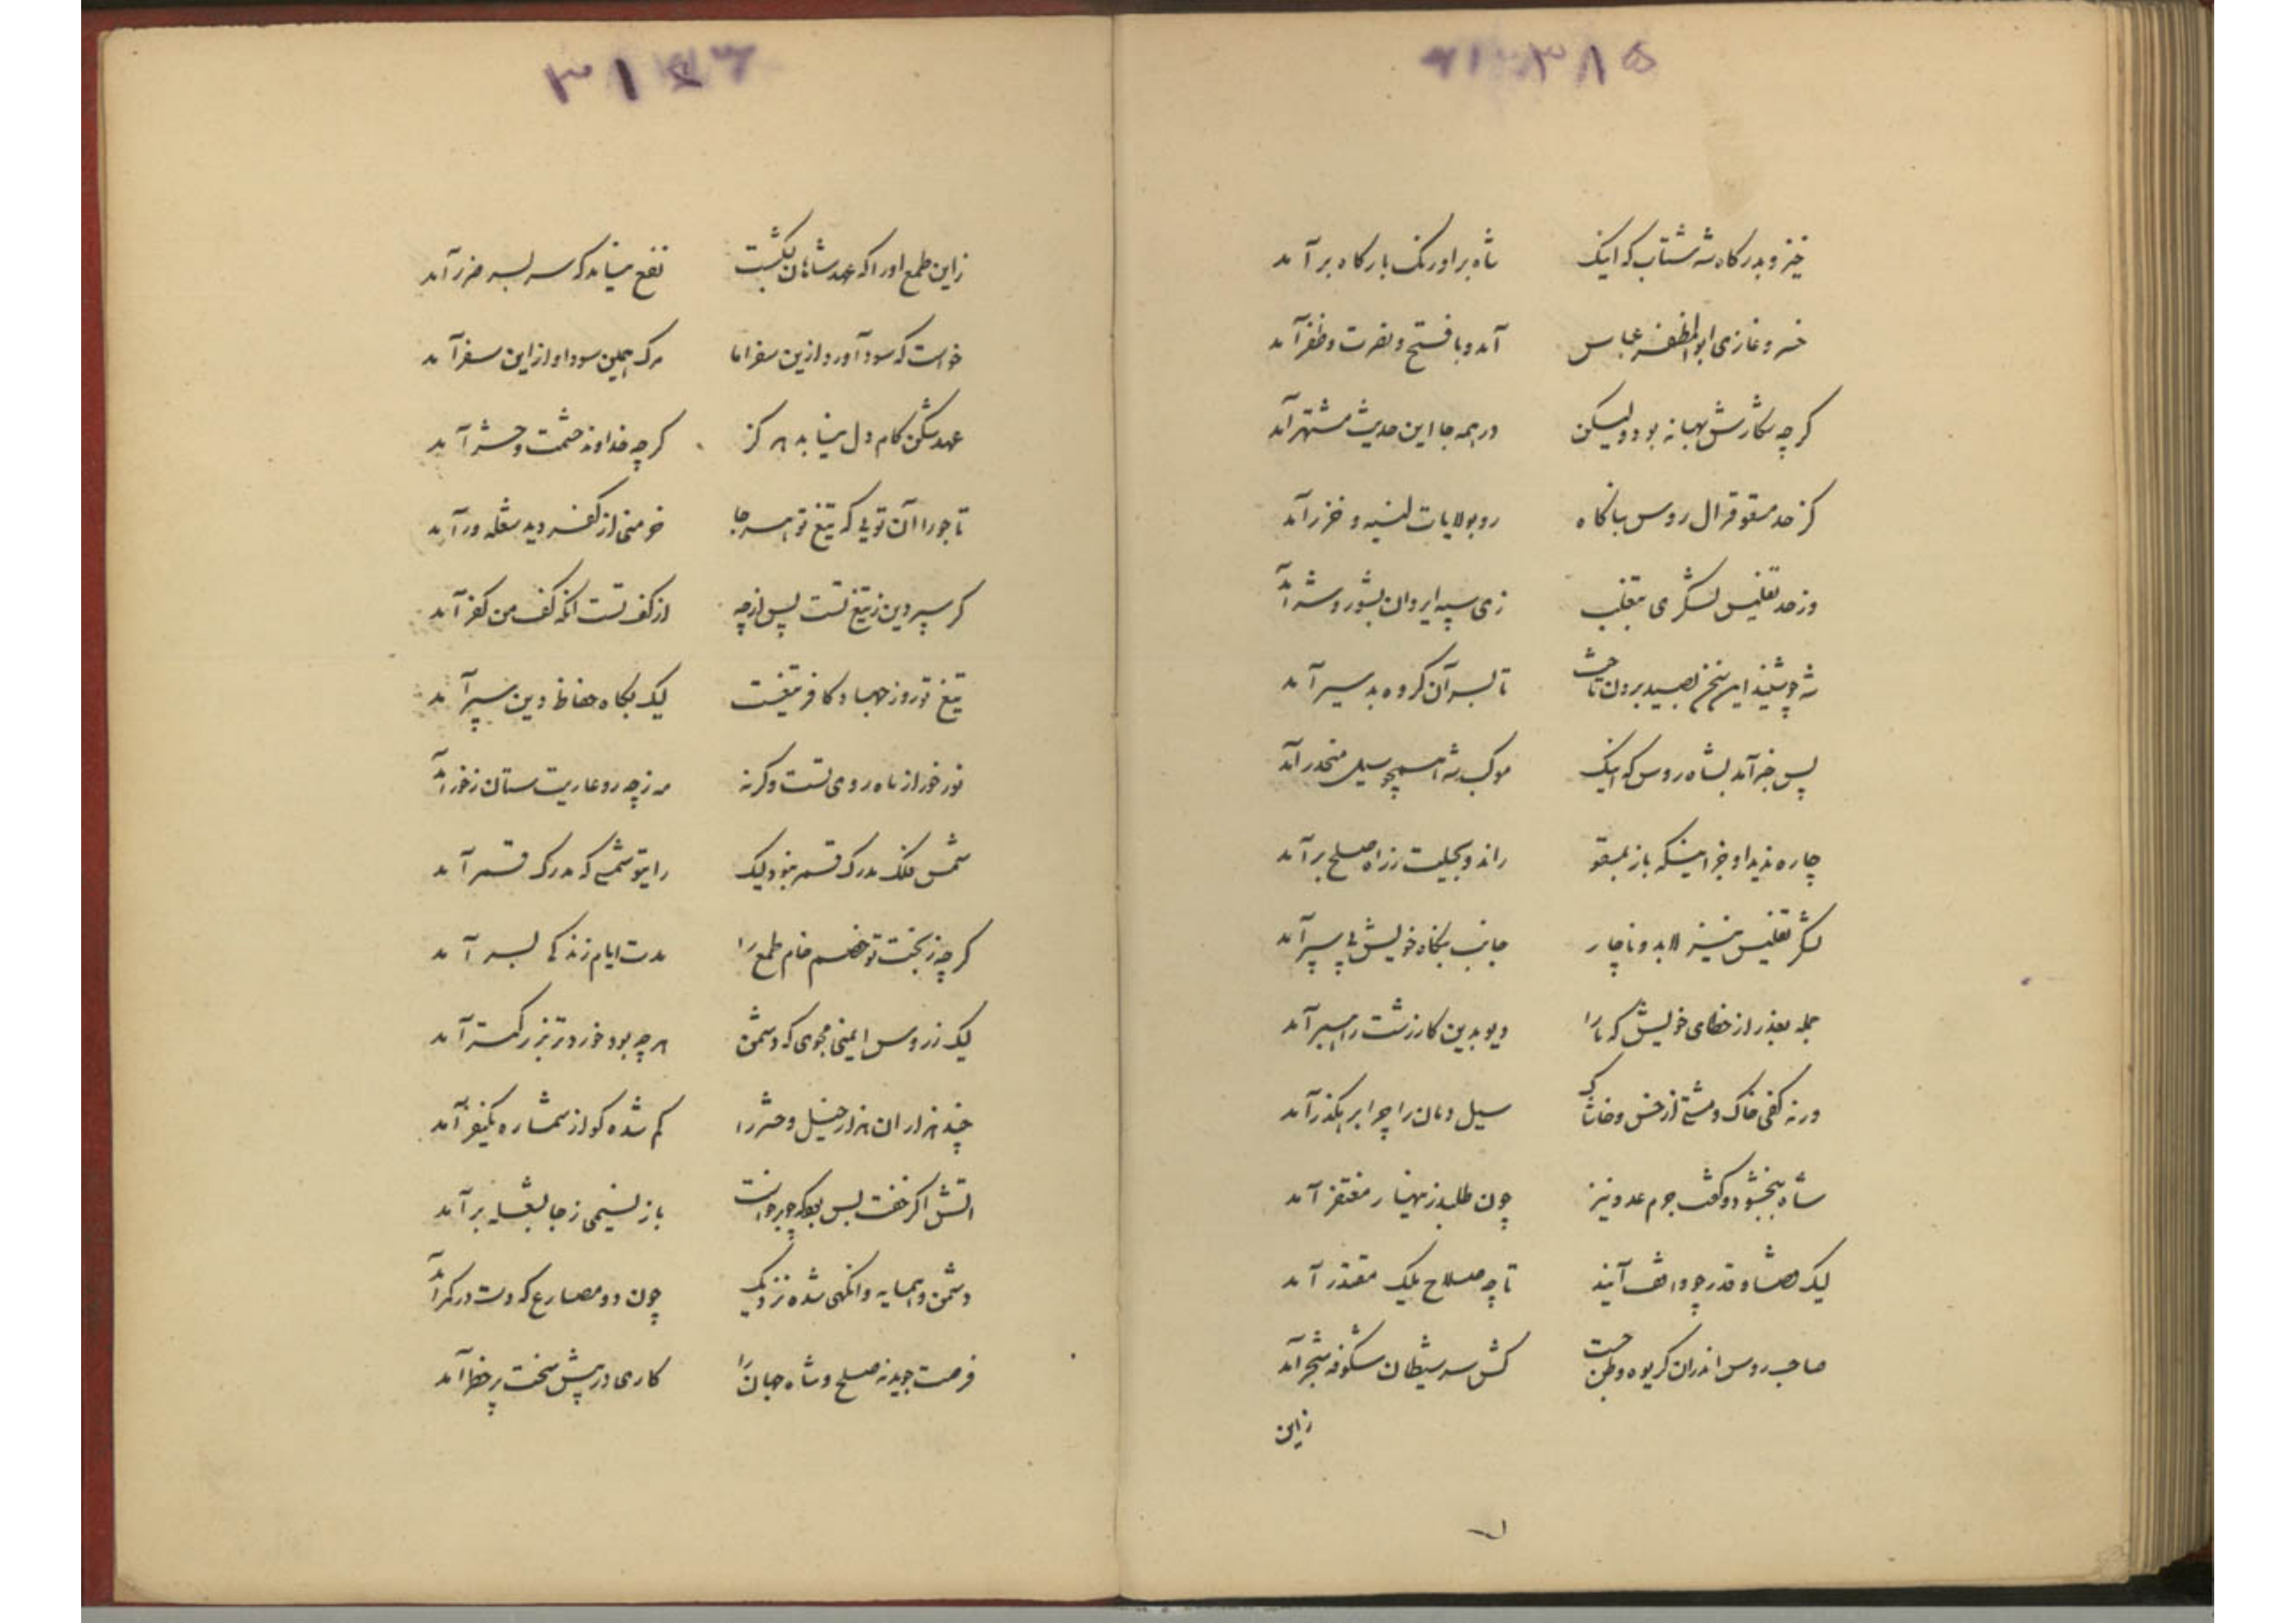 ۳۸۵
خیز و بدرکاه شه شتاب که اینک شاه بر اورنک بارکاه بر آمد
خسرو غازی ابوالمظفر عباس آمد و با فتح و نصرت و ظفر آمد
کرچه شکارش بهانه بود ولیکن در همه جا این حدیث مشتهر آمد
کز حد مسقو قرال روس بناکاه رو بولایات لنسیه و خزر آمد
وز حد تفلیس لشکری بتغلب زی سپه ایروان بشور و شر آمد
شه چو شنید این سخن بصید برون تاخت تا بسر آن کروه بد سیر آمد
پس خبر آمد بشاه روس که اینک موکب شه همچو سیل منحدر آمد
چاره ندید او جز اینکه باز بمسقو راند و بحیلت ز راه صلح بر آمد
لشکر تفلیس نیز لابد و ناچار جانب بنکاه خویش پی سپر آمد
جمله بعذر از خطای خویش که ما را دیو بدین کار زشت راهبر آمد
ورنه کفی خاک و مشتی از خس و خاشاک سیل دمان را چرا برهکذر آمد
شاه ببخشود و کفت جرم عدو نیز چون طلبد زینهار مغتفر آمد
لیک قضا و قدر چو واقف آیند تا چه صلاح ملیک مقتدر آمد
صاحب روس اندران کریوه وطن جست کش سر شیطان شکوفه شجر آمد
زاین
زاین طمع او را که عهد شاهان بکشت نفع نیامد که سر بسر ضرر آمد
خواست که سود آورد ازین سفر اما مرک همین سود او از این سفر آمد
عهد شکن کام دل نیابد هر کز کرچه خداوند حشمت و حشر آمد
تاجورا آن تویی که تیغ تو هر جا خرمنی از کفر دید شعله ور آمد
کر سپر دین ز تیغ تست پس از چه از کف تست انکه کف من کفر آمد
تیغ تو روز جهاد کافر تیغست لیک بکاه حفاظ دین سپر آمد
نور خور از ماه روی تست وکرنه مه ز چه رو عاریت ستان ز خور آمد
شمس فلک مدرک قمر نبود لیک رایتو شمسی که مدرک قمر آمد
کرچه ز بخت تو خصم خام طمع را مدت ایام زندکی بسر آمد
لیک ز روس ایمنی مجوی که دشمن هر چه بود خوردتر بزرکتر آمد
چند هزاران هزار خیل و حشر را کم شده کو از شماره یکنفر آمد
اتش اکر خفت بس بود که چو برخاست باز نسیمی ز جا بشعله بر آمد
دشمن و همسایه وانکهی شده نزدیک چون دو مصارع که دست در کمر آمد
فرصت جویند نه صلح و شاه جهان را کاری در پیش سخت پر خطر آمد